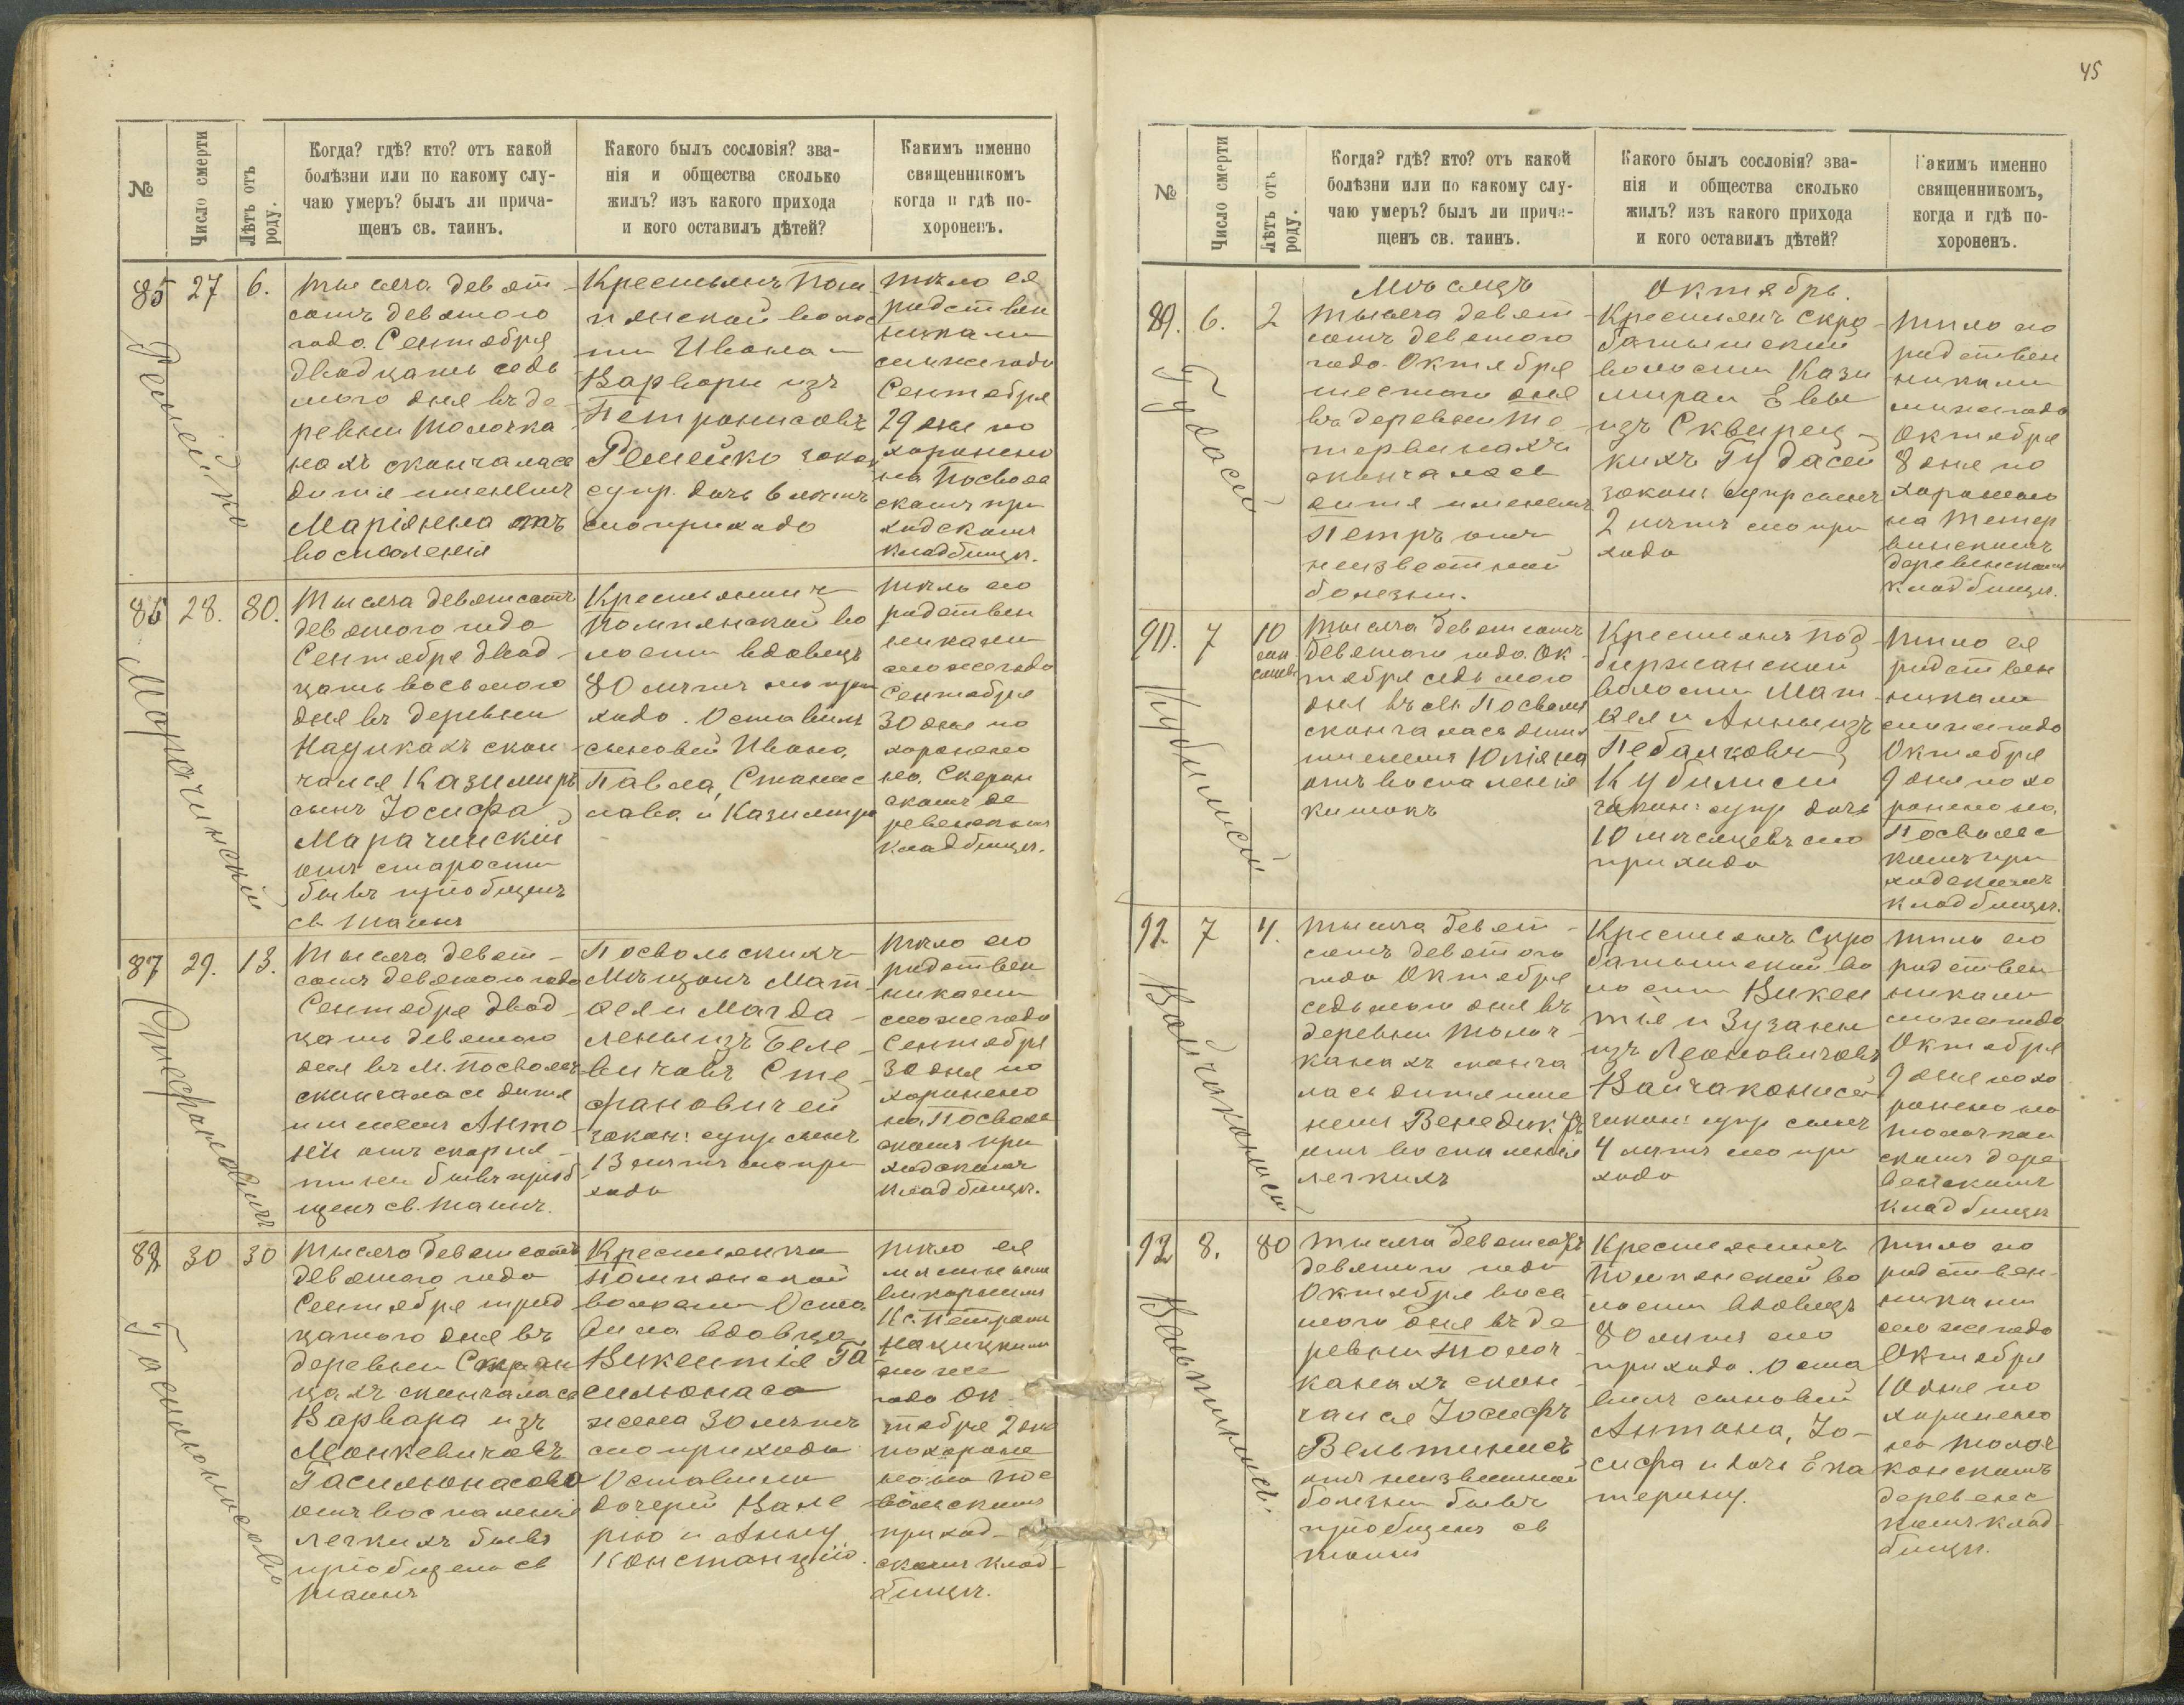 45
№
Число смерти
Лѣтъ отъ роду.
Когда? гдѣ? кто? отъ какой
болѣзни или по какому слу-
чаю умеръ? былъ ли прича-
щенъ св. таинъ.
Какого былъ сословія? зва-
нія и общества сколько
жилъ? изъ какого прихода
и кого оставилъ дѣтей?
Какимъ именно
священникомъ
когда и гдѣ по-
хороненъ.
85
27
6.
Ремейко
Тысяча девят-
сотъ девятого
года Сентября
двадцать седь
мого дня въ де-
ревни Толочка
нахъ скончалась
дитя именемъ
Маріянна отъ
воспаленія
Крестьянъ Пом-
пянской волос
ти Ивана и
Варвары изъ
Петронисовъ
Ремейко закон
супр. дочь 6 летъ
сего прихода
тѣло ея
родствен
никами
сего же года
Сентября
29 дня по
хоронено
на Посволь
скомъ при
ходскомъ
кладбищѣ.
86
28.
80.
Марачинскій
Тысяча девятсотъ
девятого года
Сентября двад-
цать восьмого
дня въ деревни
Надикахъ скон-
чался Казимиръ
сынъ Іосифа
Марачинскій
отъ старости
бывъ пріобщенъ
св. таинъ
Крестьянинъ
Помпянской во
лости вдовецъ
80 летъ сего при
хода. Оставилъ
сыновей Ивана,
Павла, Станис
лава и Казимира
тѣло его
родствен
никами
сего же года
Сентября
30 дня по
хоронено
на Скран
скомъ де
ревенскомъ
кладбищѣ.
87
29.
13.
Стефановичъ
Тысяча девят-
сотъ девятого года
Сентября двад-
цать девятого
дня въ М. Посволе
скончалась дитя
именемъ Анто-
ній отъ скарла-
тины бывъ пріоб
щенъ св. таинъ.
Посвольскихъ
Мѣщанъ Мат-
вея и Магда-
лены изъ Беле-
вичовъ Сте-
фановичей
закон: супр сынъ
13 летъ сего при
хода
тѣло его
родствен
никами
сего же года
Сентября
30 дня по
хоронено
на Посволь
скомъ при
ходскомъ
кладбищѣ.
88
30
30
Гасилюнасово
Тысяча девятсотъ
девятого года
Сентября трид
цатого дня въ
деревни Скран
цахъ скончалась
Варвара изъ
Монкевичовъ
Гасилюнасово
отъ воспаленія
легкихъ бывъ
пріобщена св
таинъ
Крестьянка
Помпянской
волости Оста
вила вдовца
Викентія Га
силюнаса
жена 30 летъ
сего прихода
Оставила
дочерей Вале
рію и Анну
Констанцію.
тѣло ея
мѣстнымъ
викарнымъ
Кс. Петромъ
сего же
года Ок
тября 2 дня
похороне
но на Пос
вольскомъ
приход-
скомъ клад
бищѣ.
№
Число смерти
Лѣтъ отъ роду.
Когда? гдѣ? кто? отъ какой
болѣзни или по какому слу-
чаю умеръ? былъ ли прича-
щенъ св. таинъ.
Какого былъ сословія? зва-
нія и общества сколько
жилъ? изъ какого прихода
и кого оставилъ дѣтей?
Какимъ именно
священникомъ,
когда и гдѣ по-
хороненъ.
Мѣсяцъ
Октябрь.
89.
6.
2
Гудасей
Тысяча девят-
сотъ девятого
года Октября
шестого дня
въ деревни Те-
тервинахъ
скончалась
дитя именемъ
Петръ отъ
неизвестной
болезни.
Крестьянъ Скро-
батышской
волости Кази
мира и Евы
изъ Сквирец-
кихъ Гудасей
закон: супр сынъ
2 летъ сего при
хода
тѣло его
родствен
никами
сего же года
Октября
8 дня по
хоронено
на Тетер
винскомъ
деревенскомъ
кладбищѣ.
90.
7
10
мѣ
сяцев.
Кубилисей
Тысяча девятсотъ
девятого года Ок-
тября седьмого
дня въ М. Посволи
скончалась дитя
именемъ Юліяна
отъ воспаленія
кишокъ
Крестьянъ Под-
биржанской
волости Мат-
вея и Анны изъ
Кубилисей
закон: супр дочь
10 мѣсяцевъ сего
прихода
тѣло ея
родствен
никами
сего же года
Октября
9 дня похо
ронено на
Посволь
комъ при
ходскомъ
кладбищѣ.
91.
7
4.
Вайчаконисей
Тысяча девят-
сотъ девятого
года Октября
седьмого дня въ
деревни Толоч-
канахъ сконча
лась дитя име
немъ Венедиктъ
отъ воспаленія
легкихъ
Крестьянъ Скро
батышской во
лости Викен
тія и Зузанны
изъ Леоновичовъ
Вайчаконисей
закон: супр сынъ
4 летъ сего при
хода
тѣло его
родствен
никами
сего же года
Октября
9 дня похо
ронено на
Толочкан
скомъ дере
венскомъ
кладбищѣ
92
8.
80
Вельтинисъ.
Тысяча девятсотъ
девятого года
Октября вось
мого дня въ де
ревни Толоч
канахъ скон-
чался Іосифъ
Вельтинисъ
отъ неизвестной
болезни бывъ
пріобщенъ св
таинъ
Крестьянинъ
Помпянской во
лости вдовецъ
80 летъ сего
прихода. Оста
вилъ сыновей
Антона, Іо-
сифа и дочь Ека
терину.
тѣло его
родствен-
никами
сего же года
Октября
10 дня по
хоронено
на Толоч
конскомъ
деревенс
комъ клад-
бищѣ.